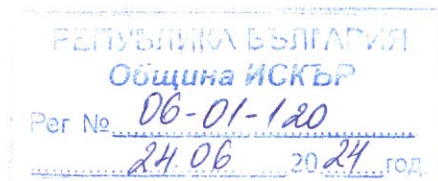 РЕПУБЛИКА БЪЛГАРИЯ
Община ИСКЪР
Рег. № 06-01-120
24.06 2024 год.